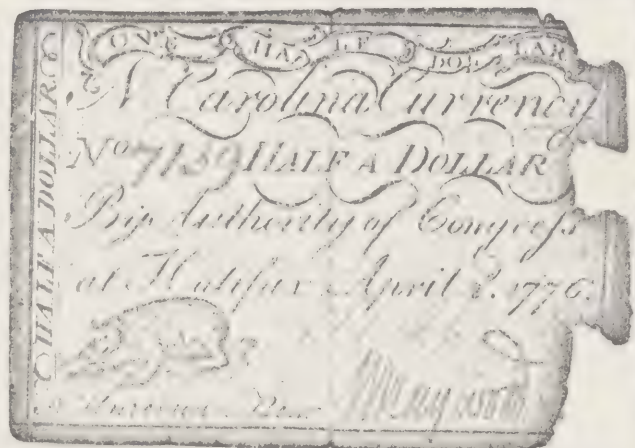 ONE HALF DOLLAR
HALF A DOLLAR
N Carolina Currency
No 7159 HALF A DOLLAR
By Authority of Congress
at Halifax April 2. 1776.